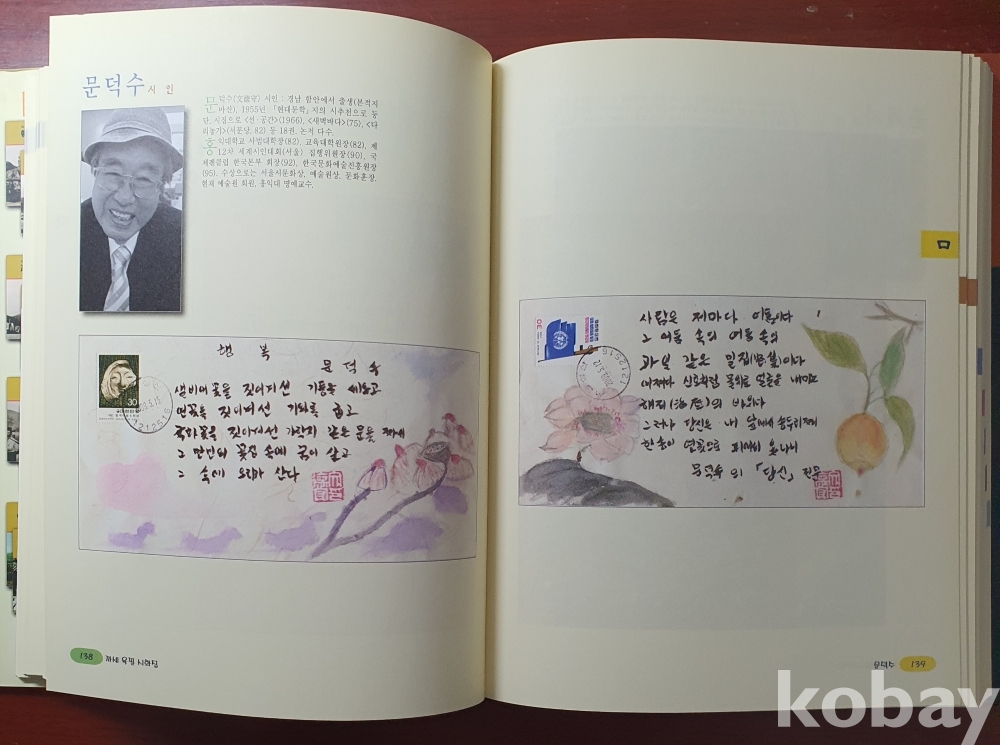 문덕수 시인
문덕수(文德守) 시인 : 경남 함안에서 출생(본적지
마산), 1955년 「현대문학」지의 시추천으로 등
단, 시집으로 <선·공간>(1966), <새벽바다>(75), <다
리놓기>(서문당, 82) 등 18권, 논저 다수.
홍익대학교 사범대학장(82), 교육대학원장(82), 제
12차 세계시인대회(서울) 집행위원장(90), 국
제펜클럽 한국본부 회장(92), 한국문화예술진흥원장
(95), 수상으로는 서울시문화상, 예술원상, 문화훈장,
현재 예술원 회원, 홍익대 명예교수.
행복
문덕수
꽃을 찢어지선 기둥을 세우고
연꽃을 찢어서선 기와를 굽고
국화꽃을 가락지 같은 문을
그 꽃집 속에 꿈이 살고
그 속에 우리가 산다
30
138 까세 육필 시화집
사람은 저마다 이름이다
그 이름 속의 이름 속의
과일 같은 밀집(密集)이다
신호처럼 물위로 얼굴을
해저(海底)의 바위다
그러나 당신은 내 앞에서
한 송이 연꽃으로
문덕수의 「당신」 전문
ㅁ
문덕수 139
kobay